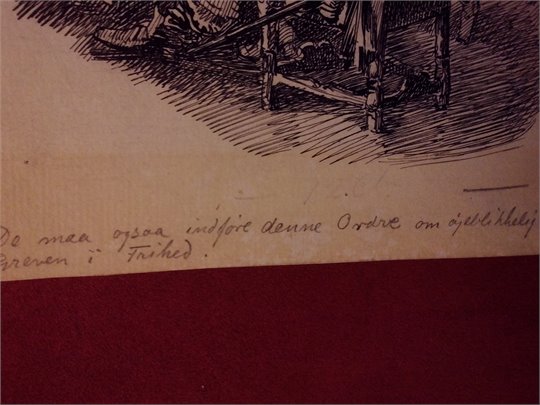 De maa ogsaa indføre denne Ordre om øjeblikkelig
Greven i Frihed.